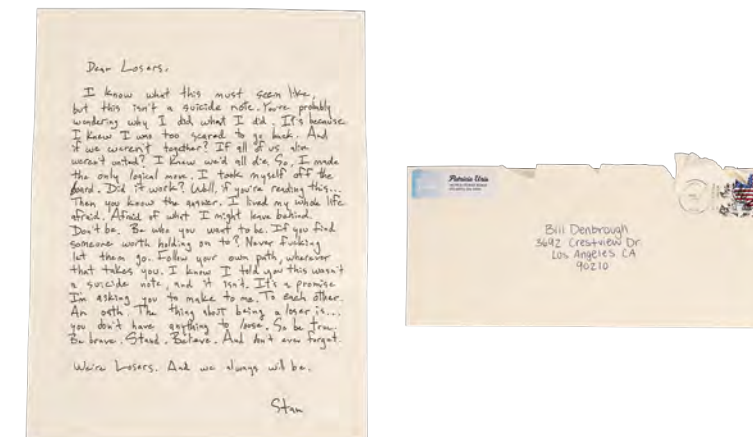 Dear Losers,
I know what this must seem like,
but this isn't a suicide note. You're probably
wondering why I did what I did. It's because
I knew I was too scared to go back. And
if we weren't together? If all of us alive
weren't united? I knew we'd all die. So, I made
the only logical move. I took myself off the
board. Did it work? Well, if you're reading this...
Then you know the answer. I lived my whole life
afraid. Afraid of what I might leave behind.
Don't be. Be who you want to be. If you find
someone worth holding on to? Never fucking
let them go. Follow your own path, wherever
that takes you. I know I told you this wasn't
a suicide note, and it isn't. It's a promise
I'm asking you to make to me. To each other.
An oath. The thing about being a loser is...
you don't have anything to loose. So be true.
Be brave. Stand. Believe. And don't ever forget.
We're Losers. And we always will be.
Stan
Patricia Uris
Bill Denbrough
3692 Crestview Dr.
Los Angeles CA
90210